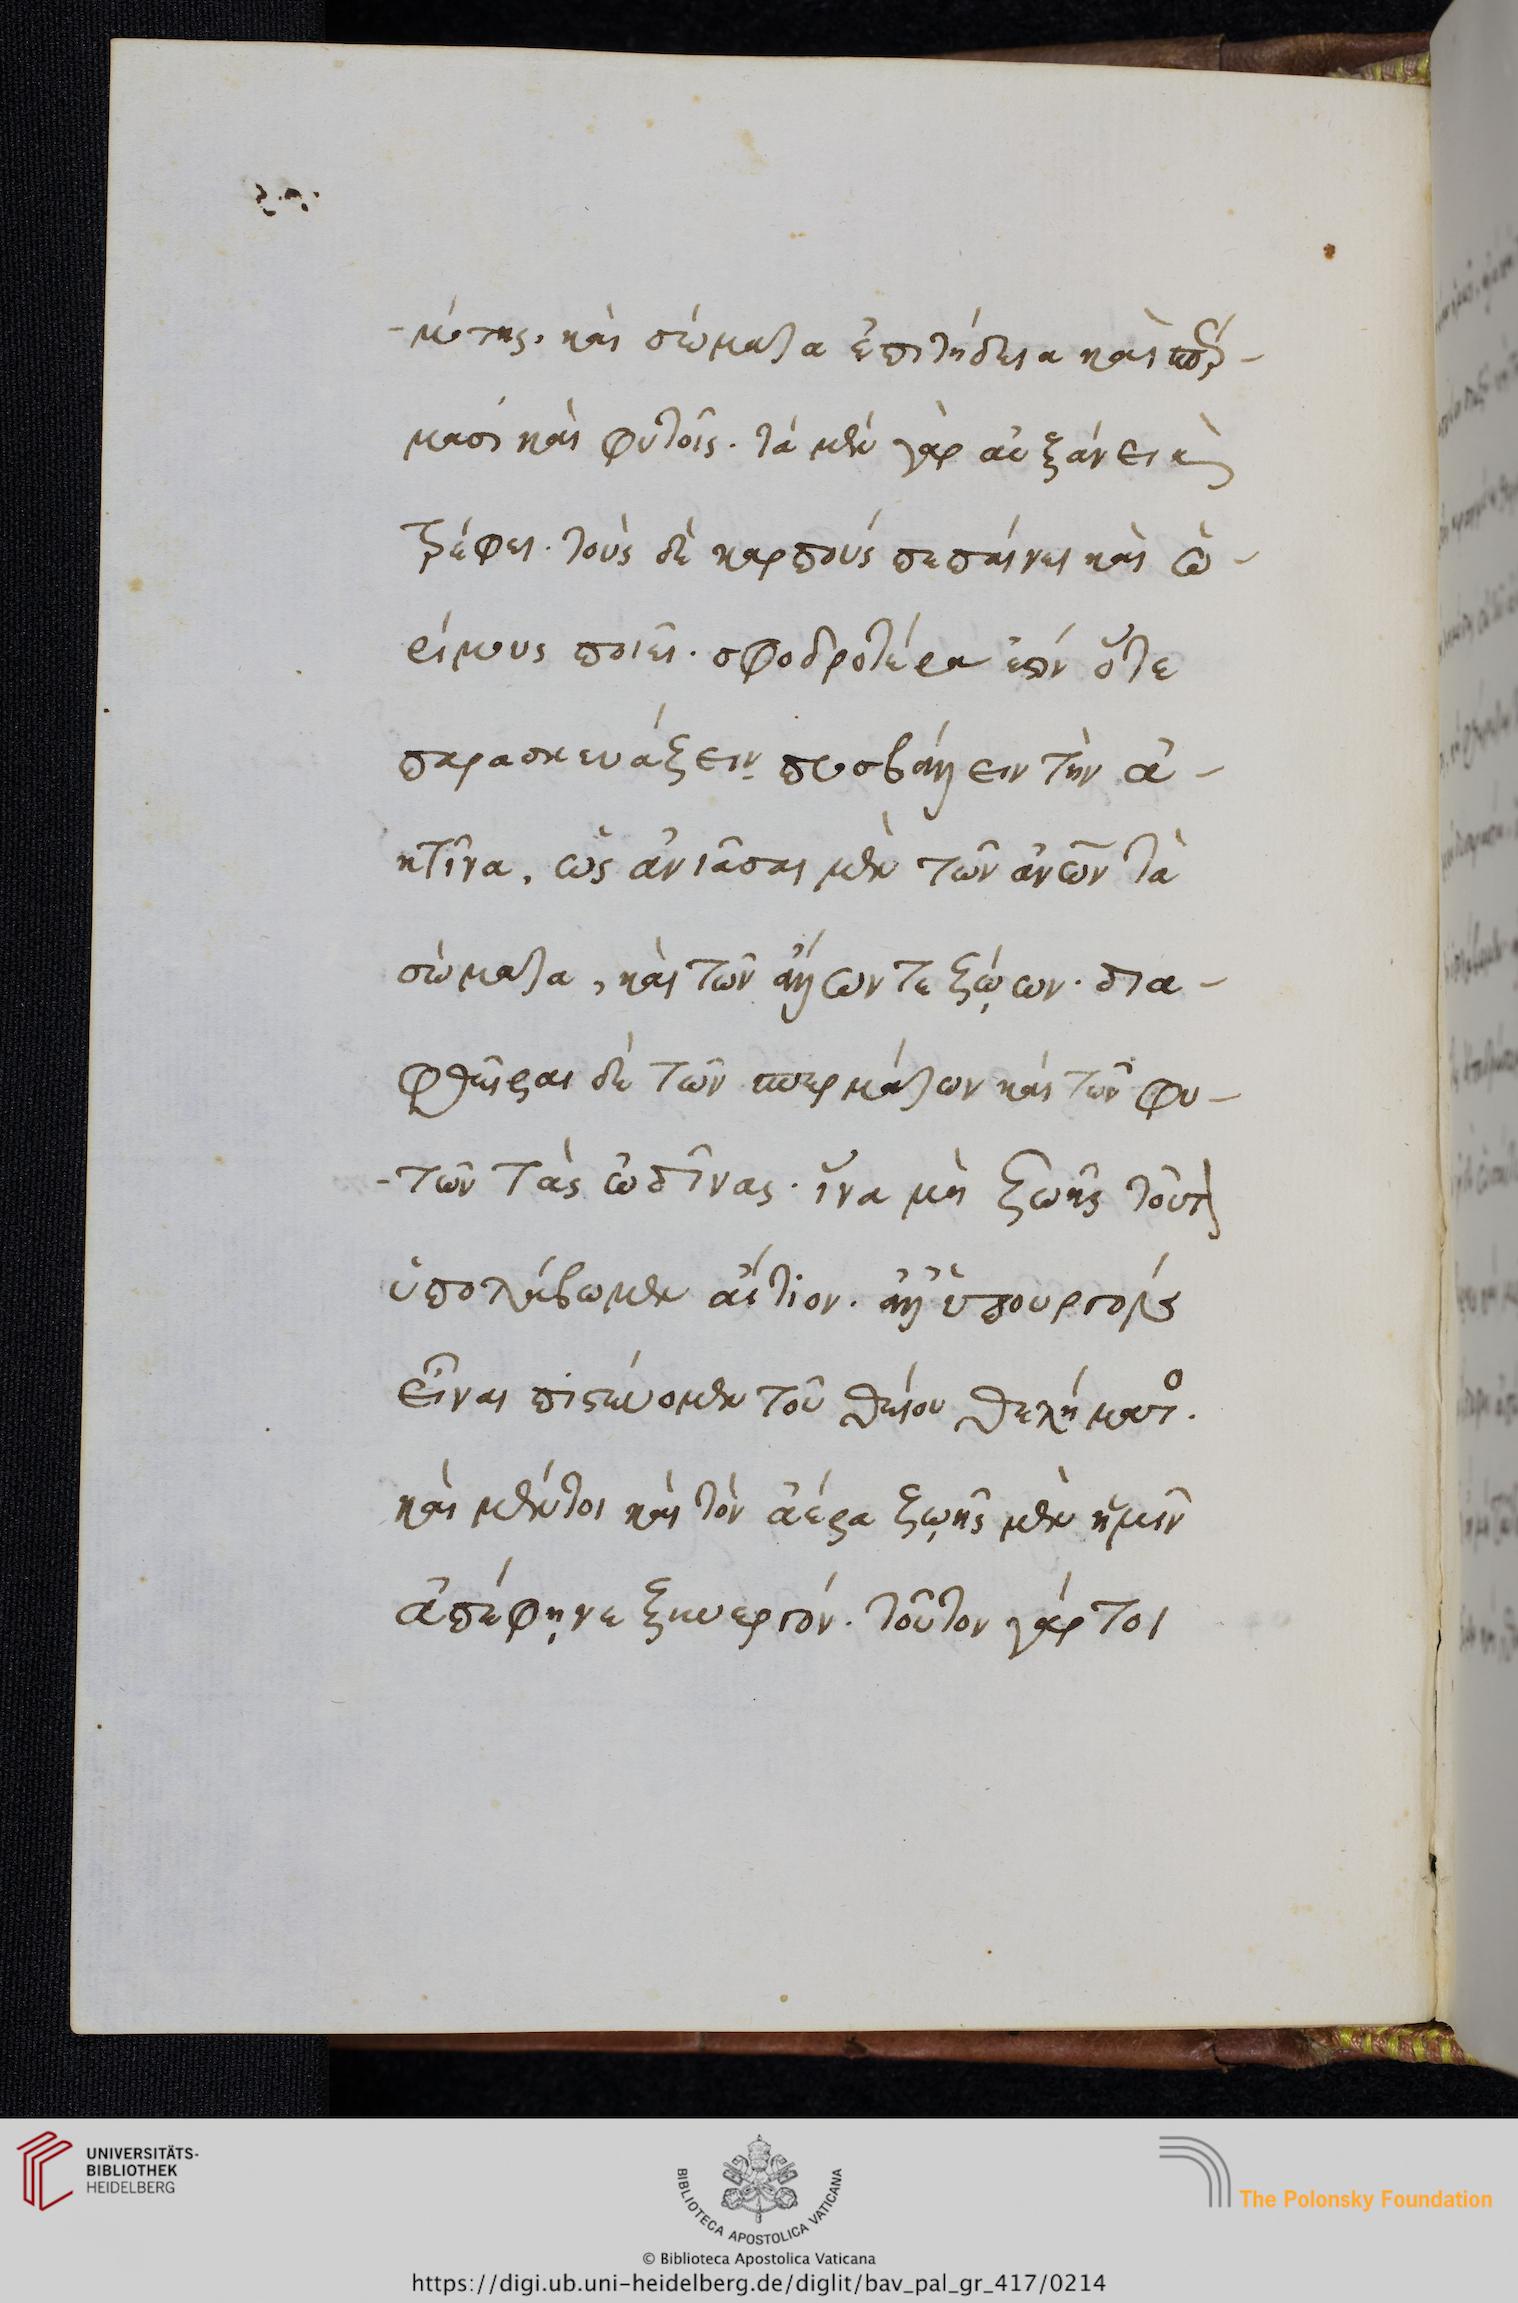 -μότης. καὶ σώματα ἐπιτήδεια καὶ σπέρ-
μασι καὶ φυτοῖς. τὰ μὲν γὰρ αὐξάνει καὶ
τρέφει. τοὺς δὲ καρποὺς πεπαίνει καὶ ὡ-
ρίμους ποιεῖ. σφοδροτέραν ἐσθ' ὅτε
παρασκευάζειν προσβάλλειν τὴν ἀ-
κτῖνα, ὡς ἀνιᾶσαι μὲν τῶν ἀνῶν τὰ
σώματα, καὶ τῶν ἄλλων τε ζῴων. δια-
φθεῖραι δὲ τῶν σπερμάτων καὶ τῶν φυ-
-τῶν τὰς ὠδῖνας. ἵνα μὴ ζωῆς τοῦτον
ὑπολάβωμεν αἴτιον. ἀλλ' ὑπουργὸν
εἶναι πιστεύομεν τοῦ θείου θελήματος.
καὶ μέντοι καὶ τὸν ἀέρα ζωῆς μὲν ἡμῖν
ἀπέφηνε ξυνεργόν. τοῦτον γάρ τοι
UNIVERSITÄTS-
BIBLIOTHEK
HEIDELBERG
BIBLIOTECA APOSTOLICA VATICANA
The Polonsky Foundation
© Biblioteca Apostolica Vaticana
https://digi.ub.uni-heidelberg.de/diglit/bav_pal_gr_417/0214